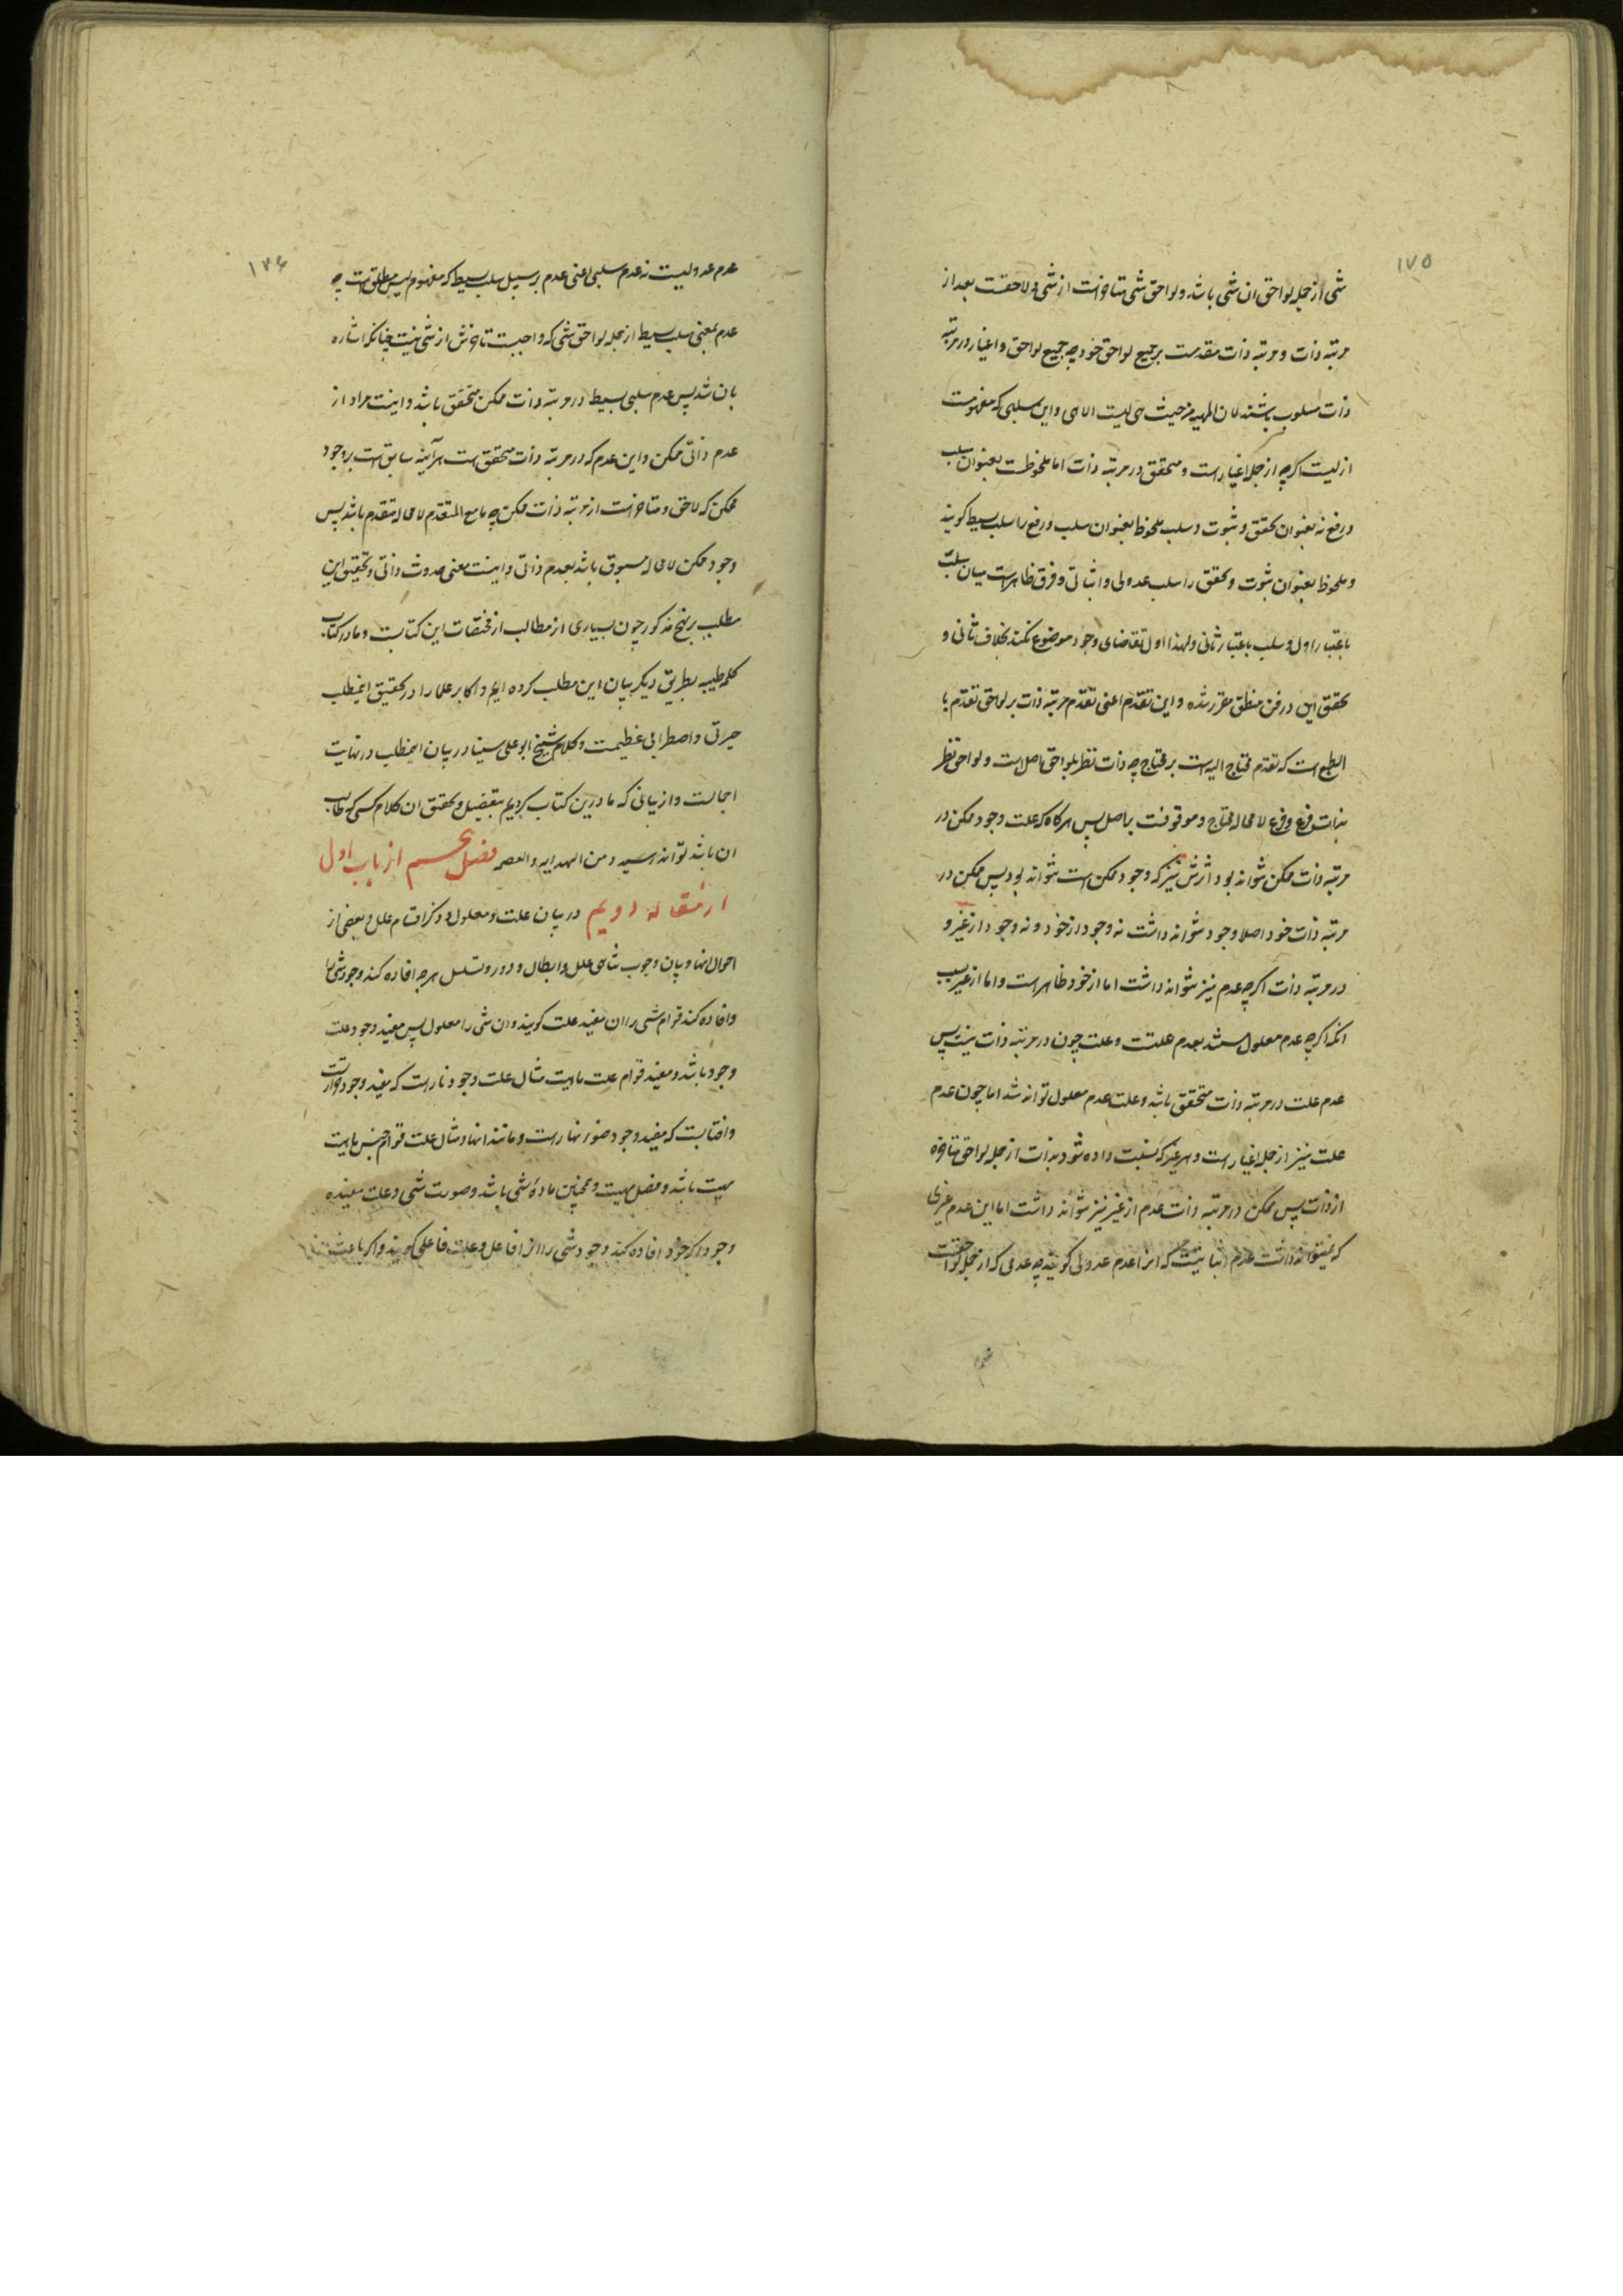 ۱۷۵
شی از جمله لواحق ان شی باشد و لواحق شی متاخر است از شی و لاحقست بعد از
مرتبه ذات و مرتبه ذات مقدمست بر جمیع لواحق خود چه جمیع لواحق و اغیار در مرتبه
ذات مسلوب باشند لان المهیه من حیث هی لیست الا هی و این سلبی که مفهومست
از لیست اکرچه از جمله اغیار است و متحقق در مرتبه ذات اما ملحوظست بعنوان سلب
و رفع نه بعنوان تحقق و ثبوت و سلب ملحوظ بعنوان سلب و رفع را سلب بسیط کویند
و ملحوظ بعنوان ثبوت و تحقق را سلب عدولی و اثباتی و فرق ظاهر است میان سلب
باعتبار اول و سلب باعتبار ثانی و لهذا اول تقاضای وجود موضوع نکند بخلاف ثانی و
تحقق این در فن منطق مقرر شده و این تقدم اعنی تقدم مرتبه ذات بر لواحق تقدم با
الطبع است که تقدم محتاج الیه است بر محتاج چه ذات نظر بلواحق اصل است و لواحق نظر
بذات فرع و فرع لا محاله محتاج و موقوفست باصل پس هرکاه که علت وجود ممکن در
مرتبه ذات ممکن نتواند بود اثرش نیز که وجود ممکن است نتواند بود پس ممکن در
مرتبه ذات خود اصلا وجود نتواند داشت نه وجود از خود و نه وجود از غیر و
در مرتبه ذات اکرچه عدم نیز نتواند داشت اما از خود ظاهر است و اما از غیر بسبب
انکه اکرچه عدم معلول مستند بعدم علتست و علت چون در مرتبه ذات نیست پس
عدم علت در مرتبه ذات متحقق باشد و علت عدم معلول تواند شد اما چون عدم
علت نیز از جمله اغیار است و هر غیر که نسبت داده شود بذات از جمله لواحق متاخره
از ذات پس ممکن در مرتبه ذات عدم از غیر نیز نتواند داشت اما این عدم غیری
که نمیتواند داشت عدم اثباتیست که انرا عدم عدولی کویند چه عدمی که از جمله لواحقست
عدم
۱۷۶
عدم عدولیست نه عدم سلبی اعنی عدم بر سبیل سلب بسیط که مفهوم لیس مطلق است چه
عدم بمعنی سلب بسیط از جمله لواحق شی که واجبست تاخرش از شی نیست چنانکه اشاره
بان شد پس عدم سلبی بسیط در مرتبه ذات ممکن متحقق باشد و اینست مراد از
عدم ذاتی ممکن و این عدم که در مرتبه ذات متحقق است هرآینه سابق است بر وجود
ممکن که لاحق و متاخر است از مرتبه ذات ممکن چه ما مع المتقدم لا محاله متقدم باشد پس
وجود ممکن لا محاله مسبوق باشد بعدم ذاتی و اینست معنی حدوث ذاتی و تحقیق این
مطلب بر نهج مذکور چون بسیاری از مطالب از مختصات این کتابست و ما در کتاب
کلمه طیبه بطریق دیکر بیان این مطلب کرده ایم و اکابر علما را در تحقیق اینمطلب
حیرتی و اضطرابی عظیمست و کلام شیخ ابو علی سینا در بیان اینمطلب در نهایت
اجمالست و از بیانی که ما درین کتاب کردیم بتفصیل و تحقق ان کلام کسی که طالب
ان باشد تواند رسید و من الهدایه و العصمه فصل از باب اول
از مقاله دویم در بیان علت و معلول و ذکر اقسام علل و بعضی از
احوال انها و بیان وجوب تناهی علل و ابطال و دور و تسلسل هرچه افاده کند وجود شی را
و افاده کند قوام شی را ان مفید علت کویند و ان شی را معلول پس مفید وجود علت
وجود باشد و مفید قوام علت ماهیت مثال علت وجود نار است که مفید وجود حرارت
و افتابست که مفید وجود ضوء نهار است و مانند انها و مثال علت قوام جنس ماهیت
مهیت باشد و فصل مهیت و همچنین ماده شی باشد و صورت شی و علت مفیده
وجود اکر خود افاده کند وجود شی را انرا فاعل و علت فاعلی کویند و اکر باعث